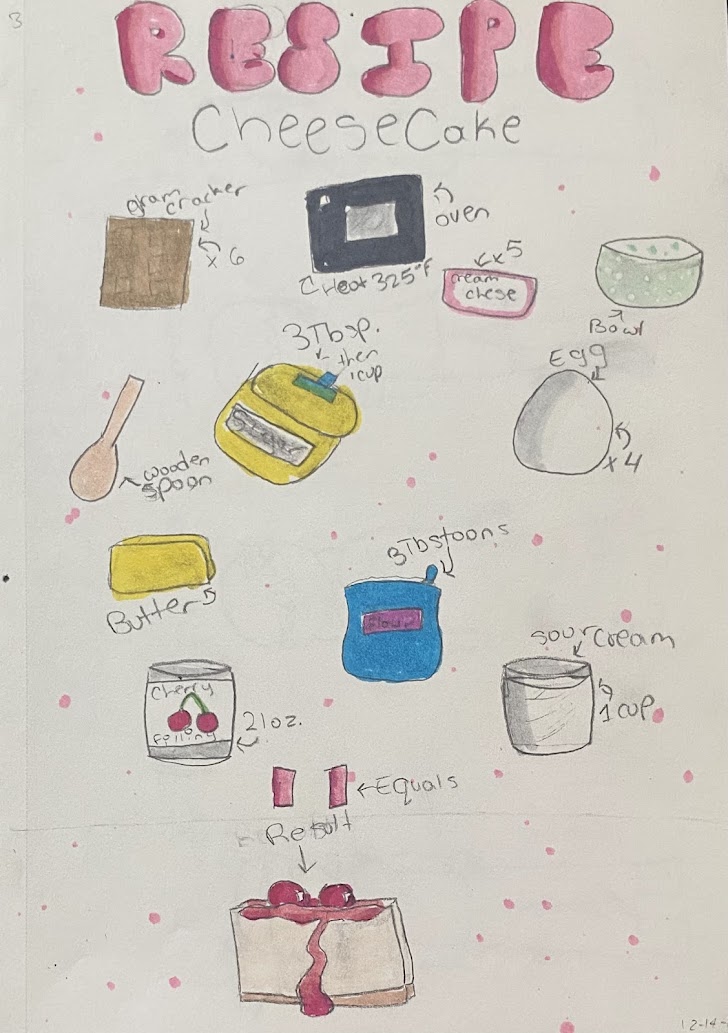 3
RESIPE
CheeseCake
gram
cracker
x 6
oven
Heat 325°F
x5
cream
chese
Bowl
3Tbsp.
then
1cup
Egg
x4
wooden
spoon
3Tbstoons
Butter
Flour
sour cream
1 cup
Cherry
21oz.
Equals
Result